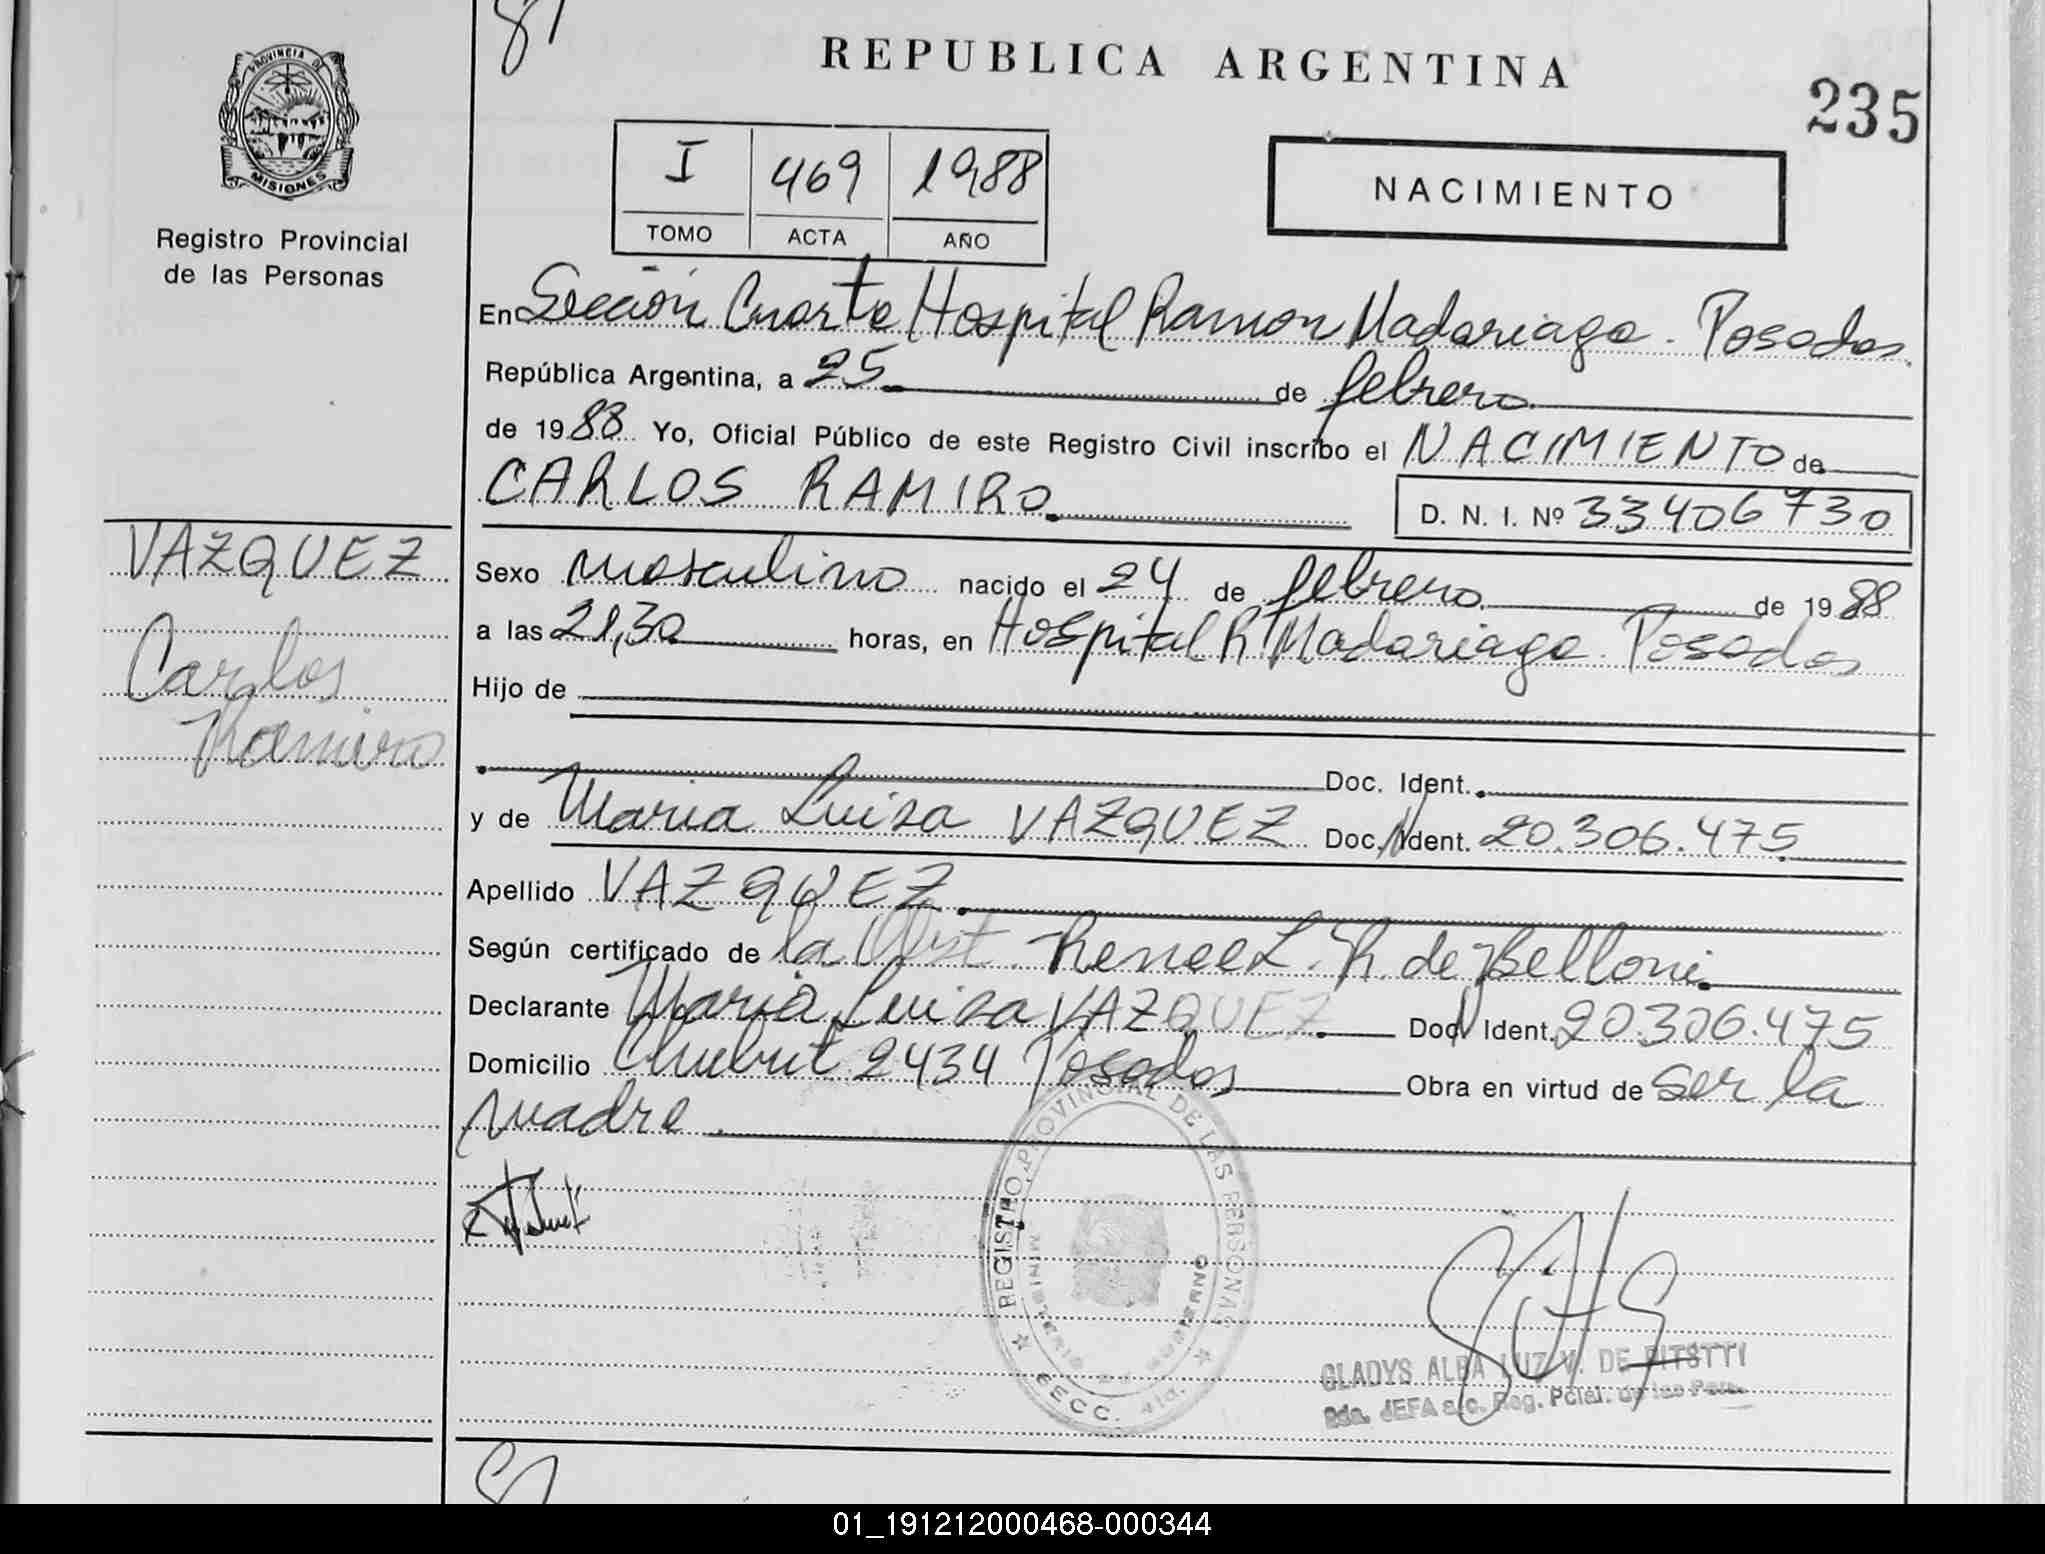 REPUBLICA ARGENTINA
235
PROVINCIA DE
MISIONES
Registro Provincial
de las Personas
I 469 1988
TOMO ACTA AÑO
NACIMIENTO
En Sección Cuarta Hospital Ramon Madariaga. Posadas
República Argentina, a 25 de febrero
de 1988 Yo, Oficial Público de este Registro Civil inscribo el NACIMIENTO de
CARLOS RAMIRO
D. N. I. Nº 33406730
VAZQUEZ
Carlos
Ramiro
Sexo masculino nacido el 24 de febrero de 1988
a las 21,30 horas, en Hospital R. Madariaga. Posadas
Hijo de
Doc. Ident.
y de Maria Luisa VAZQUEZ Doc. N Ident. 20.306.475
Apellido VAZQUEZ
Según certificado de la Obst. Renee L. R. de Belloni
Declarante Maria Luisa VAZQUEZ Doc N Ident. 20.306.475
Domicilio Chubut 2434 Posadas Obra en virtud de ser la
madre.
REGISTRO PROVINCIAL DE LAS PERSONAS
MINISTERIO DE GOBIERNO
SECC. 4ta.
GLADYS ALBA LUZ V. DE
2da. JEFA a/c. Reg. Pcial. de las Pers.
01_191212000468-000344